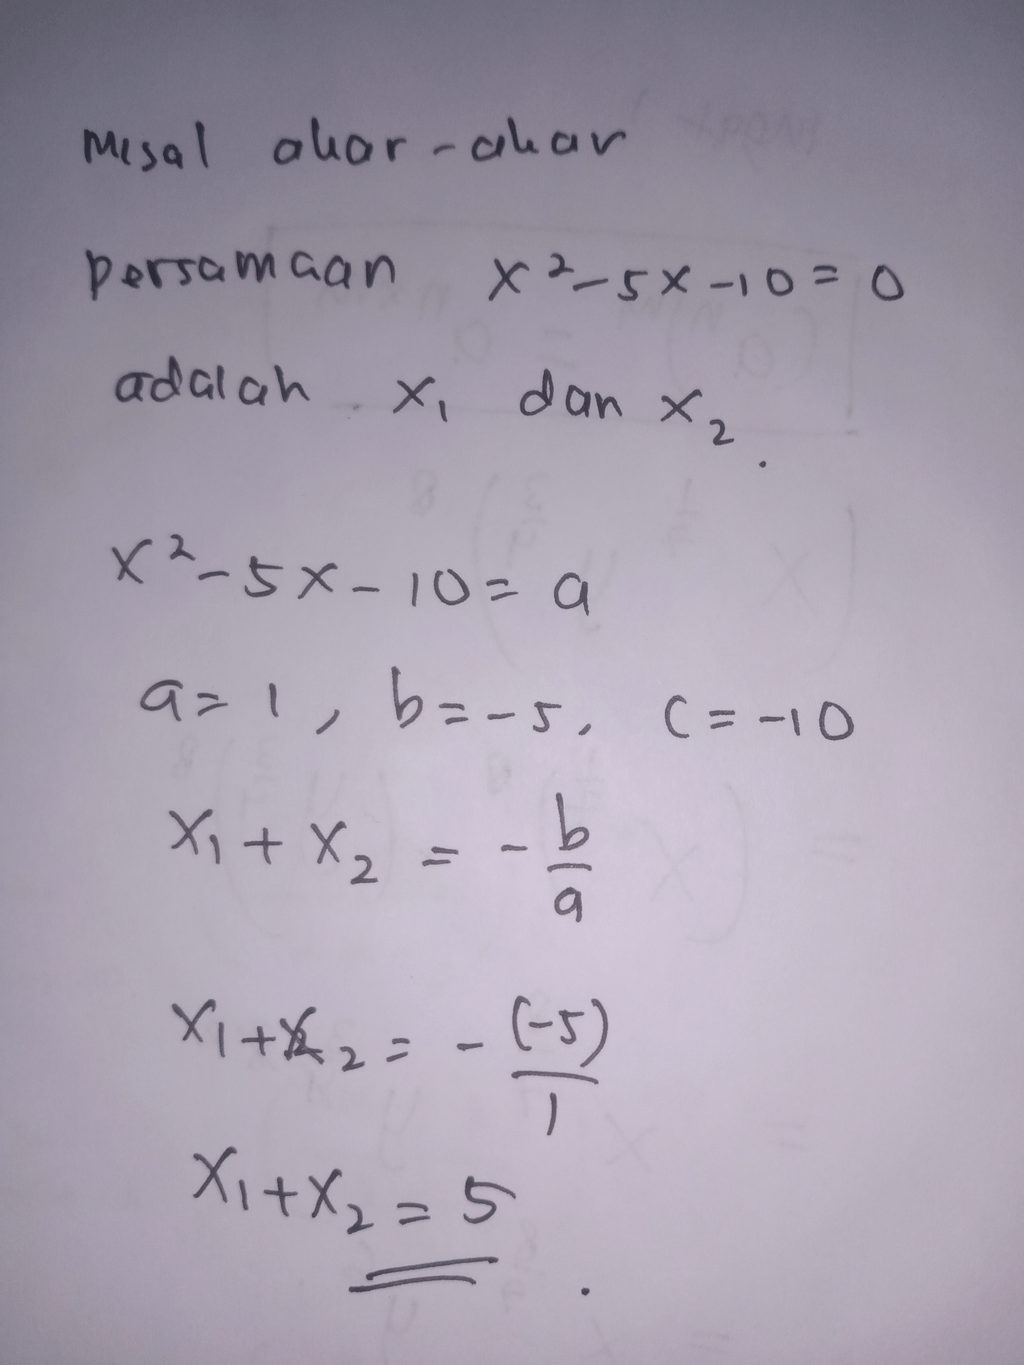 Misal akar-akar
persamaan x²-5x-10=0
adalah x₁ dan x₂.
x²-5x-10=a
a=1, b=-5, c=-10
x₁+x₂ = -b/a
x₁+x₂ = -(-5)/1
x₁+x₂=5.